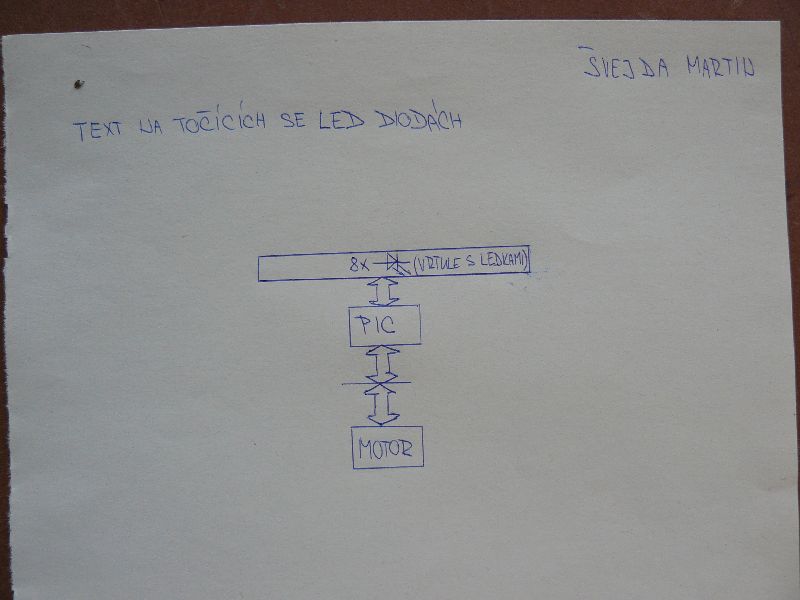 ŠVEJDA MARTIN
TEXT NA TOČÍCÍCH SE LED DIODÁCH
8x (VRTULE S LEDKAMI)
PIC
MOTOR